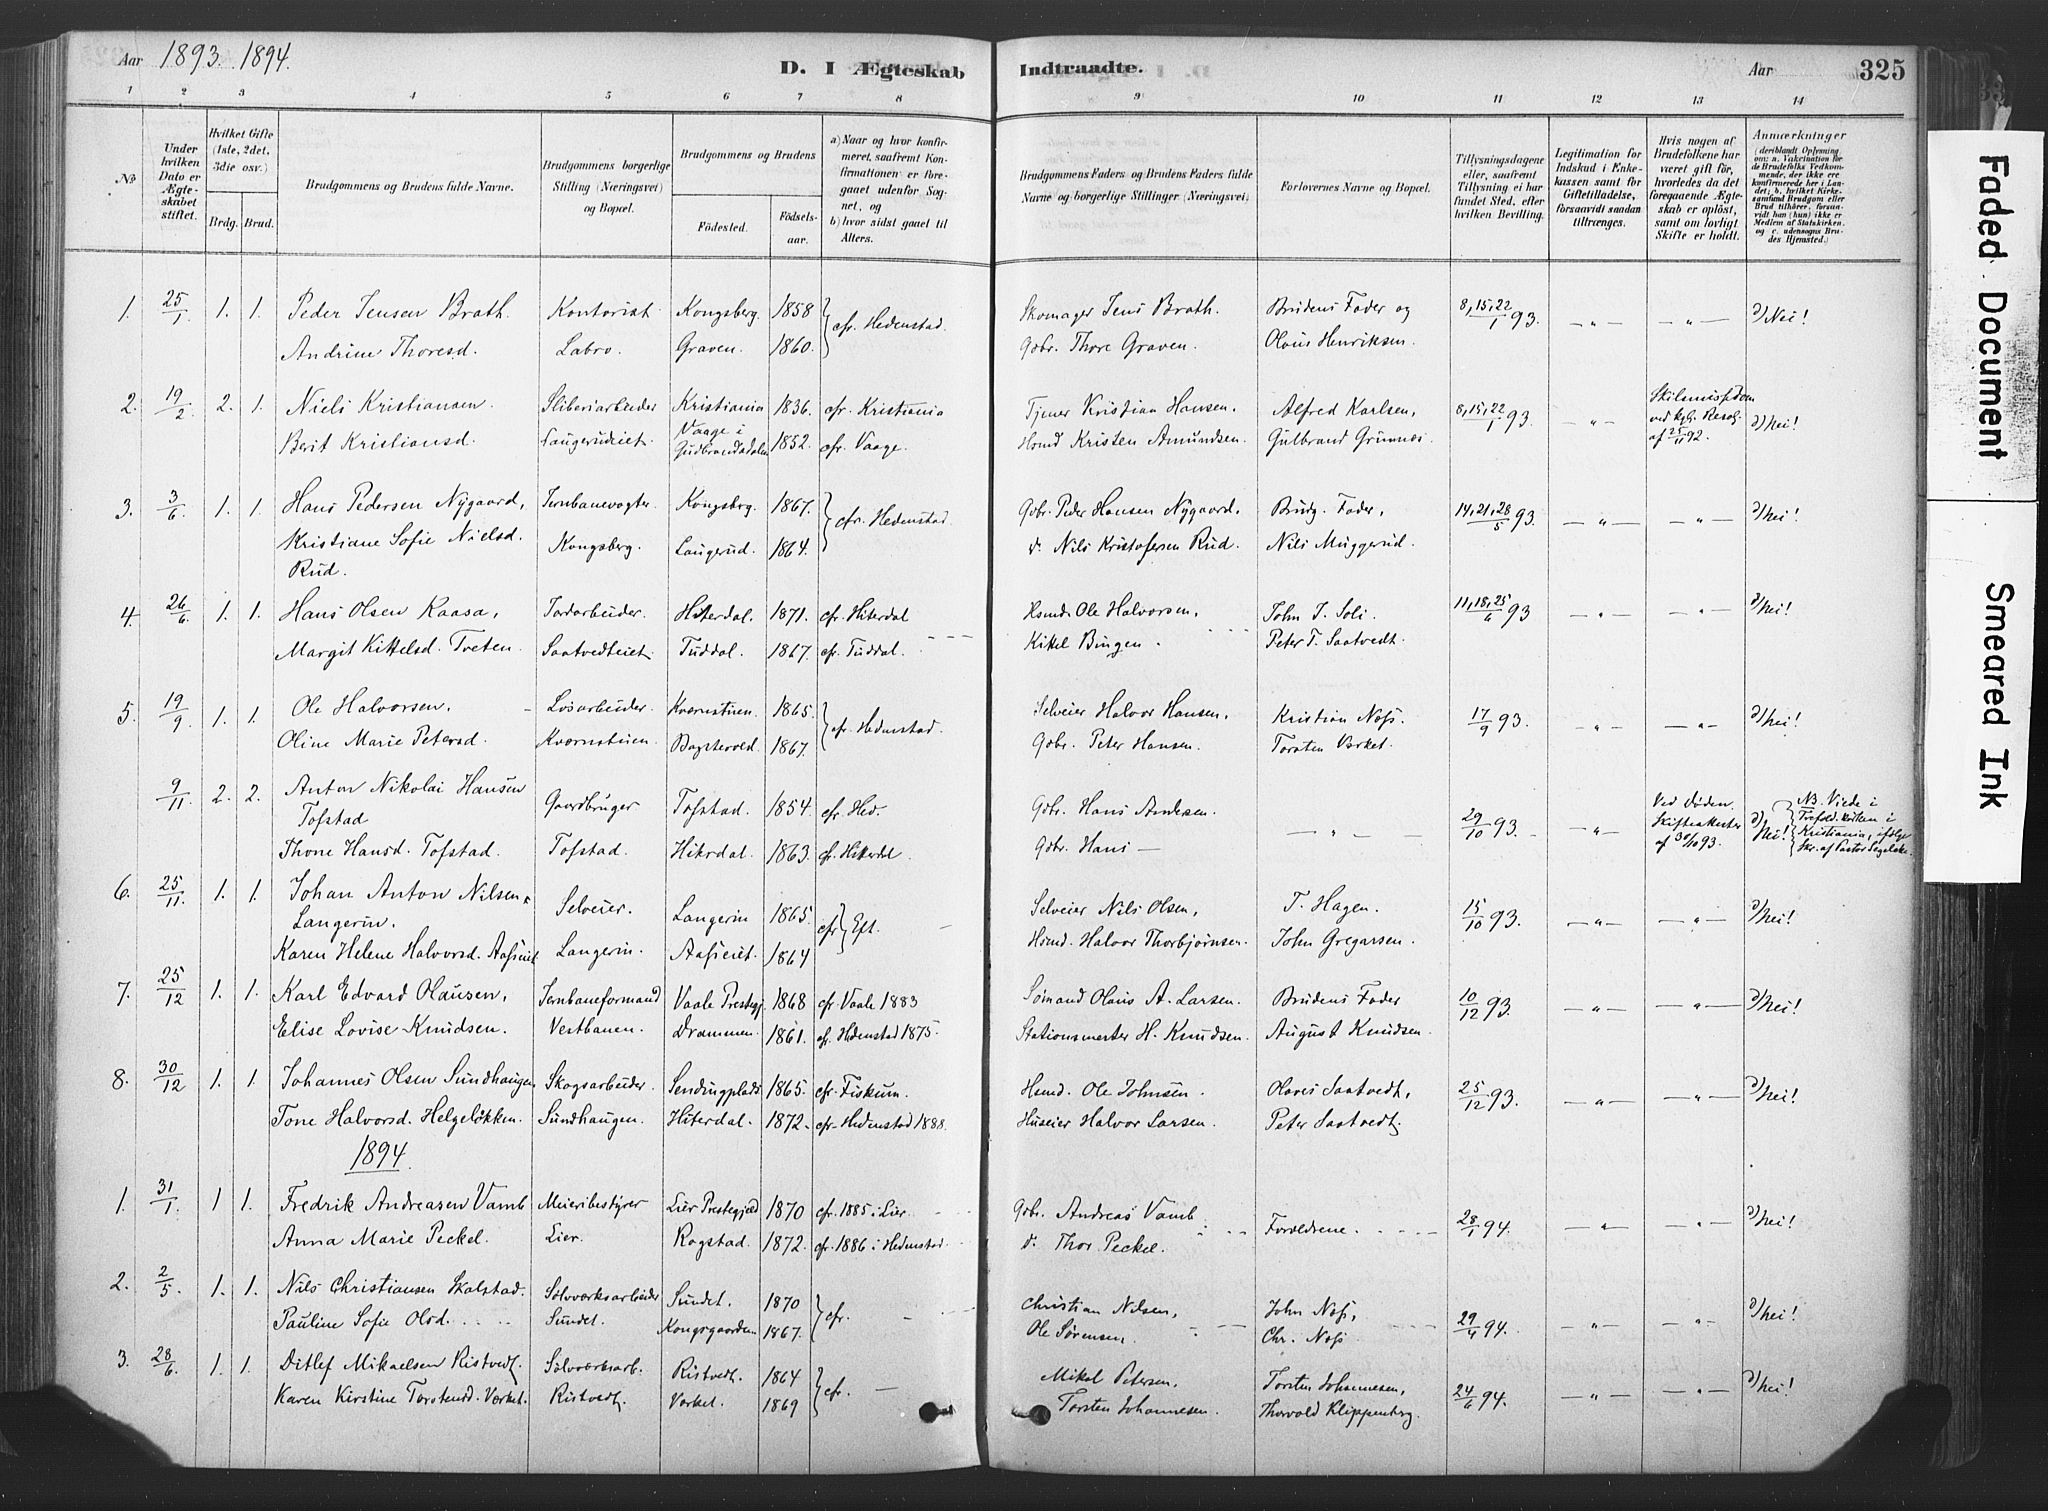 Aar 1893. 1894.
D. I Ægteskab Indtraadte.
Aar 325
1 2 3 4 5 6 7 8 9 10 11 12 13 14
№
Under hvilken Dato er Ægteskabet stiftet.
Hvilket Gifte (1ste, 2det, 3die osv.)
Brdg. Brud.
Brudgommens og Brudens fulde Navne.
Brudgommens borgerlige Stilling (Næringsvei) og Bopæl.
Brudgommens og Brudens
Födested. Födselsaar.
a) Naar og hvor konfirmeret, saafremt Konfirmationen er foregaaet udenfor Sognet, og b) hvor sidst gaaet til Alters.
Brudgommens Faders og Brudens Faders fulde Navne og borgerlige Stillinger (Næringsvei)
Forlovernes Navne og Bopæl.
Tillysningsdagene eller, saafremt Tillysning ei har fundet Sted, efter hvilken Bevilling.
Legitimation for Indskud i Enkekassen samt for Giftetilladelse, forsaavidt saadan tiltrænges.
Hvis nogen af Brudefolkene har været gift för, hvorledes da det foregaaende Ægteskab er oplöst, samt om lovligt Skifte er holdt.
Anmærkninger (deriblandt Oplysning om: a. Vakcination for de Brudefolks Vedkommende, der ikke ere konfirmerede her i Landet; b. hvilket Kirkesamfund Brudgom eller Brud tilhörer, forsaavidt han (hun) ikke er Medlem af Statskirken, og c. udensogns Brudes Hjemsted.)
1. 25/1 1. 1. Peder Jensen Brath. Kontorist Kongsberg. 1858 cfr. Hedenstad. Skomager Jens Brath. Brudens Fader og 8, 15, 22/1 93. — " — — " — d/Nei!
Andrine Thoresd. Labro. Graven. 1860. Gdbr. Thore Graven. Olaus Henriksen.
2. 19/2 2. 1. Niels Kristiansen. Sliberiarbeider Kristiania 1836. cfr. Kristiania Tjener Kristian Hansen. Alfred Karlsen, 8, 15, 22/1 93. — " — Skilsmissedom ved kgl. Resol. af 25/11 92. d/Nei!
Berit Kristiansd. Laugerudeiet. Vaage i Gudbrandsdalen 1852. cfr. Vaage. Hsmd Kristen Amundsen. Gulbrand Grumnes.
3. 3/6 1. 1. Hans Pedersen Nygaard, Jernbanevogter Kongsbrg. 1867. cfr. Hedenstad. Gdbr. Peder Hansen Nygaard. Brudg. Fader, 14, 21, 28/5 93. — " — — " — d/Nei!
Kristiane Sofie Nielsd. Rud. Kongsberg. Laugerud. 1864. d. Nils Kristofersen Rud. Nils Muggerud.
4. 26/6 1. 1. Hans Olsen Kaasa, Jordarbeider. Hiterdal. 1871. cfr. Hiterdal Hsmd. Ole Halvorsen, John J. Soli. 11, 18, 25/6 93 — " — — " — d/Nei!
Margit Kittelsd. Tveten. Saatvedteiet. Tuddal. 1867. cfr. Tuddal. Kittel Bingen. Peter T. Saatvedt.
5. 19/9 1. 1. Ole Halvorsen. Losarbeider. Kvernstuen. 1865. cfr. Hedenstad. Selveier Halvor Hansen, Kristian Nøss. 17/9 93. — " — — " — d/Nei!
Oline Marie Petersd. Kvernstuen. Bagstevold. 1867. Gdbr. Peter Hansen. Torsten Værket.
9/11. 2. 2. Anton Nikolai Hansen Tofstad Gaardbruger Tofstad. 1854. cfr. Hed. Gdbr. Hans Andersen. — " — 29/10 93. — " — Ved Døden. Skifteakester af 30/10 93. d/Nei! NB. Viede i Trefold. kirken i Kristiania, ifølge Skr. af Pastor Segelcke.
Thone Hansd. Tofstad. Tofstad. Hiterdal. 1863. cfr. Hiterdal. Gdbr. Hans —
6. 25/11. 1. 1. Johan Anton Nilsen Langerin. Selveier. Langerin 1865. cfr Eft. Selveier Nils Olsen, T. Hagen. 15/10 93. — " — — " — d/Nei!
Karen Helene Halvorsd. Aaseiet Langerin. Aaseiet. 1864 Hsmd. Halvor Thorbjørnsen. John Gregarsen.
7. 25/12 1. 1. Karl Edvard Olausen, Jernbaneformand Vaale Prestegj. 1868 cfr. Vaale 1883 Sømand Olaus A. Larsen. Brudens Fader 10/12 93. — " — — " — d/Nei!
Elise Lovise Knudsen. Vestbanen. Drammen. 1861. cfr. Hedenstad 1875. Stationsmester H. Knudsen. August Knudsen.
8. 30/12 1. 1. Johannes Olsen Sundhaugen Skogsarbeider. Sendingplads 1865. cfr. Fiskum. Hsmd. Ole Johnsen. Olaves Saatvedt, 25/12 93. — " — — " — d/Nei!
Tone Halvorsd. Helgeløkken. Sundhaugen. Hiterdal. 1872. cfr. Hedenstad 1888. Huseier Halvor Larsen. Peter Saatvedt.
1894.
1. 31/1. 1 1. Fredrik Andreasen Vamb Meieribestyrer Lier Prestegjæld 1870 cfr. 1885 i Lier. Gdbr. Andreas Vamb Forældrene. 28/1 94. — " — — " — d/Nei!
Anna Marie Peckel. Lier. Rogstad. 1872. cfr. 1886 i Hedenstad. d. Thor Peckel.
2. 2/5. 1. 1. Nils Christiansen Skalstad. Sølvværksarbeider Sundet. 1870 cfr. — Christian Nilsen, John Nøss. 29/4 94. — " — — " — d/Nei!
Pauline Sofie Olsd. Sundet. Kongsgaarden 1867. Ole Sørensen. Chr. Nøss
3. 28/6 1. 1. Ditlef Mikaelsen Ristvedt. Sølvværksarb. Ristvedt. 1864 cfr. — Mikal Petersen. Torsten Johannesen, 24/6 94. — " — — " — d/Nei!
Karen Kirstine Torstensd. Værket. Ristvedt. Værket. 1869 Torsten Johannesen. Thorvald Klippenbrg.
Faded Document
Smeared Ink